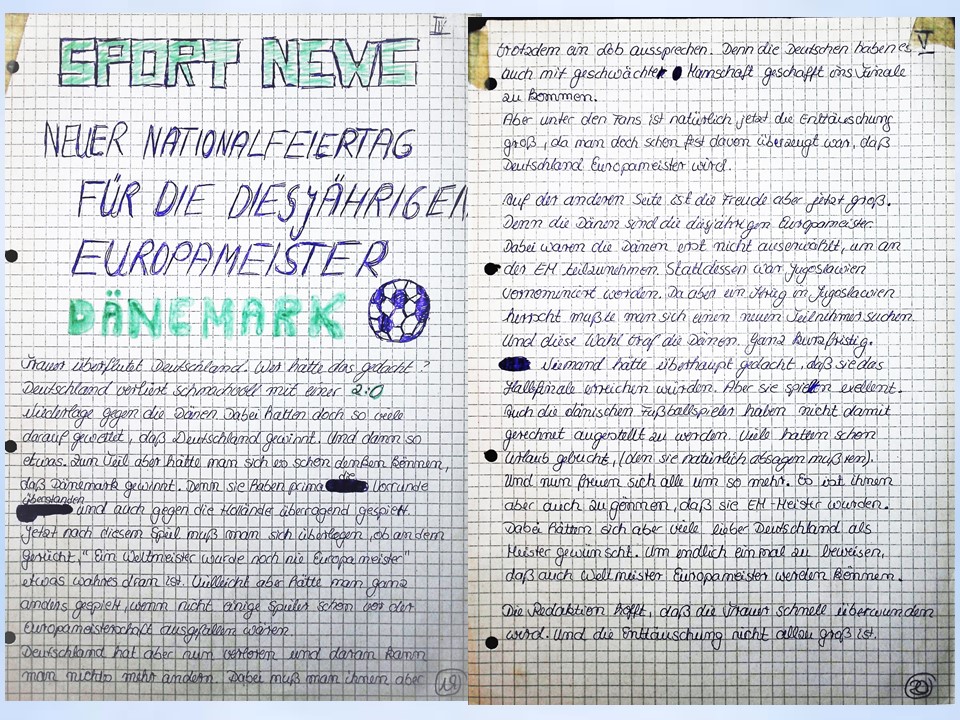 IV
SPORT NEWS
NEUER NATIONALFEIERTAG
FÜR DIE DIESJÄHRIGEN
EUROPAMEISTER
DÄNEMARK
Trauer überflutet Deutschland. Wer hätte das gedacht?
Deutschland verliert schmachvoll mit einer 2:0
Niederlage gegen die Dänen. Dabei hatten doch so viele
darauf gewettet, daß Deutschland gewinnt. Und dann so
etwas. Zum Teil aber hätte man sich es schon denken können,
daß Dänemark gewinnt. Denn sie haben prima die Vorrunde
überstanden und auch gegen die Hollände überragend gespielt.
Jetzt nach diesem Spiel muß man sich überlegen, ob an dem
Gerücht, "Ein Weltmeister wurde noch nie Europameister"
etwas wahres dran ist. Vielleicht aber hätte man ganz
anders gespielt, wenn nicht einige Spieler schon vor der
Europameisterschaft ausgefallen wären.
Deutschland hat aber nun verloren und daran kann
man nichts mehr ändern. Dabei muß man ihnen aber
19
V
trotzdem ein Lob aussprechen. Denn die Deutschen haben es
auch mit geschwächter Mannschaft geschafft ins Finale
zu kommen.
Aber unter den Fans ist natürlich jetzt die Enttäuschung
groß, da man doch schon fest davon überzeugt war, daß
Deutschland Europameister wird.
Auf der anderen Seite ist die Freude aber jetzt groß.
Denn die Dänen sind die diesjährigen Europameister.
Dabei waren die Dänen erst nicht auserwählt, um an
der EM teilzunehmen. Stattdessen war Jugoslawien
vornominiert worden. Da aber ein Krieg in Jugoslawien
herrscht mußte man sich einen neuen Teilnehmer suchen.
Und diese Wahl traf die Dänen. Ganz kurzfristig.
Niemand hätte überhaupt gedacht, daß sie das
Halbfinale erreichen würden. Aber sie spielten exellent.
Auch die dänischen Fußballspieler haben nicht damit
gerechnet aufgestellt zu werden. Viele hatten schon
Urlaub gebucht, (den sie natürlich absagen mußten).
Und nun freuen sich alle um so mehr. Es ist ihnen
aber auch zu gönnen, daß sie EM-Meister wurden.
Dabei hätten sich aber viele lieber Deutschland als
Meister gewünscht. Um endlich einmal zu beweisen,
daß auch Weltmeister Europameister werden können.
Die Redaktion hofft, daß die Trauer schnell überwunden
wird. Und die Enttäuschung nicht allzu groß ist.
20